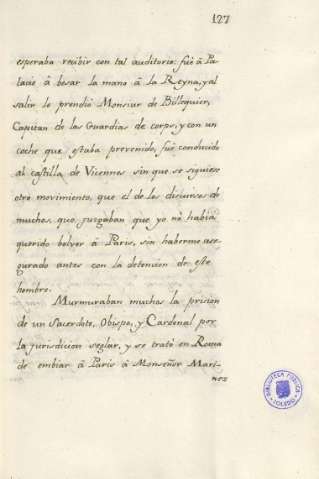 127
esperaba recibir con tal auditorio: fué à Pa-
lacio â besar la mano â la Reyna, y al
salir le prendio Monsiur de Billoquier,
Capitan de las Guardias de corps, y con un
coche que estaba prevenido, fue conducido
al castilla de Vicennes sin que se siguiese
otro movimiento, que el de los discursos de
muchos, que juzgaban que yo no había
querido bolver â Paris, sin haberme ase-
gurado antes con la detencion de este
hombre.
Murmuraban muchos la prision
de un Sacerdote, Obispo, y Cardenal por
la jurisdicion seglar, y se trató en Roma
de embiar â Paris â Monseñor Mari-
nos
BIBLIOTECA PUBLICA
TOLEDO